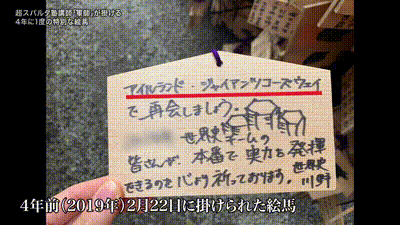 超スパルタ塾講師「軍師」が掛ける
4年に1度の特別な絵馬
アイルランド・ジャイアンツコーズウェイ
で再会しましょう。
世界史チームの
皆さんが、本番で実力を発揮
できるのを心より祈っております。世界史
川野
4年前(2019年)2月22日に掛けられた絵馬